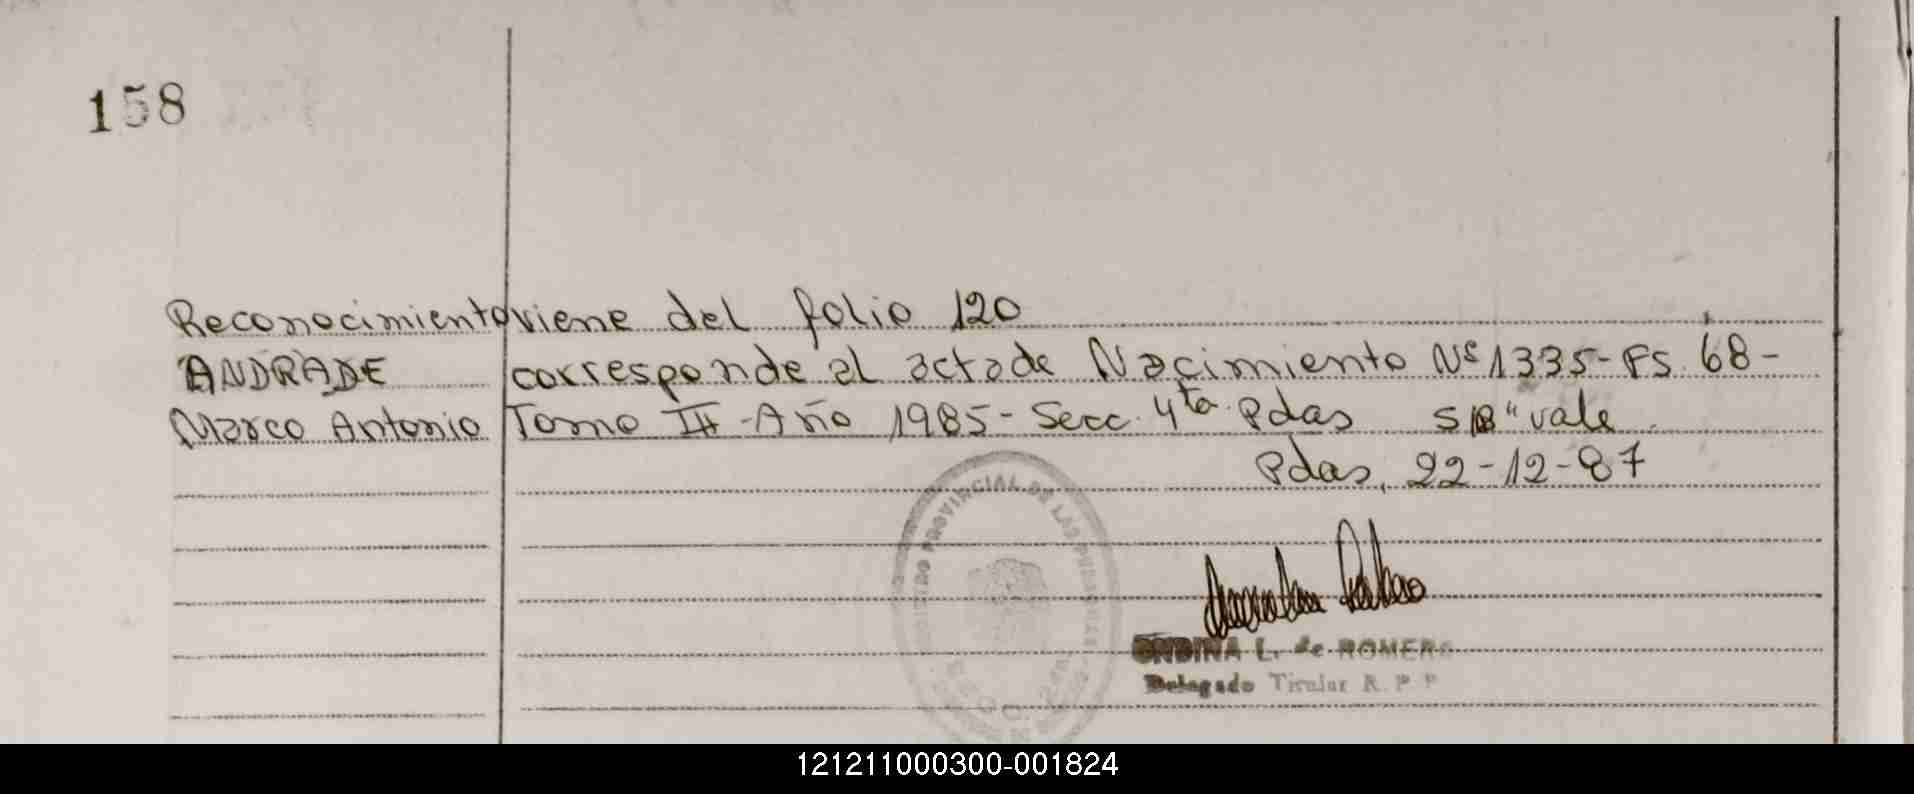 158
Reconocimiento viene del folio 120
ANDRADE corresponde al acta de Nacimiento Nº 1335-Fs. 68-
Marco Antonio Tomo III-Año 1985-Secc. 4ta. Pdas S/B" vale
Pdas, 22-12-87
PROVINCIAL DE LAS
ONDINA L. de ROMERO
Delegado Titular R. P. P
121211000300-001824